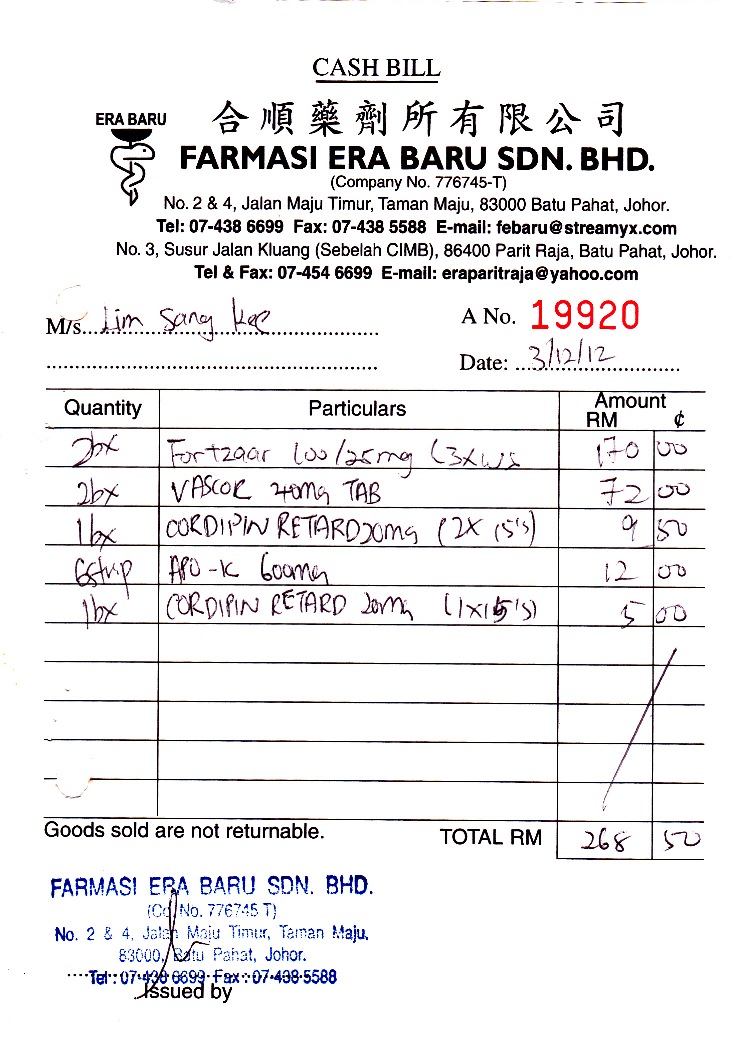 CASH BILL
ERA BARU
合順藥劑所有限公司
FARMASI ERA BARU SDN. BHD.
(Company No. 776745-T)
No. 2 & 4, Jalan Maju Timur, Taman Maju, 83000 Batu Pahat, Johor.
Tel: 07-438 6699 Fax: 07-438 5588 E-mail: febaru@streamyx.com
No. 3, Susur Jalan Kluang (Sebelah CIMB), 86400 Parit Raja, Batu Pahat, Johor.
Tel & Fax: 07-454 6699 E-mail: eraparitraja@yahoo.com
M/s. Lim Sang Kee A No. 19920
Date: 3/12/12
Quantity Particulars Amount
RM ¢
2bx Fortzaar 100/25mg 170 00
2bx VASCOR 40mg TAB 72 00
1bx CORDIPIN RETARD 20mg (2X 15's) 9 50
APO-K 600mg 12 00
1bx CORDIPIN RETARD 20mg (1X15's) 5 00
Goods sold are not returnable. TOTAL RM 268 50
FARMASI ERA BARU SDN. BHD.
(Co No. 776745 T)
No. 2 & 4, Jalan Maju Timur, Taman Maju,
83000, Batu Pahat, Johor.
Tel: 07-438 6699 Fax: 07-438 5588
Issued by